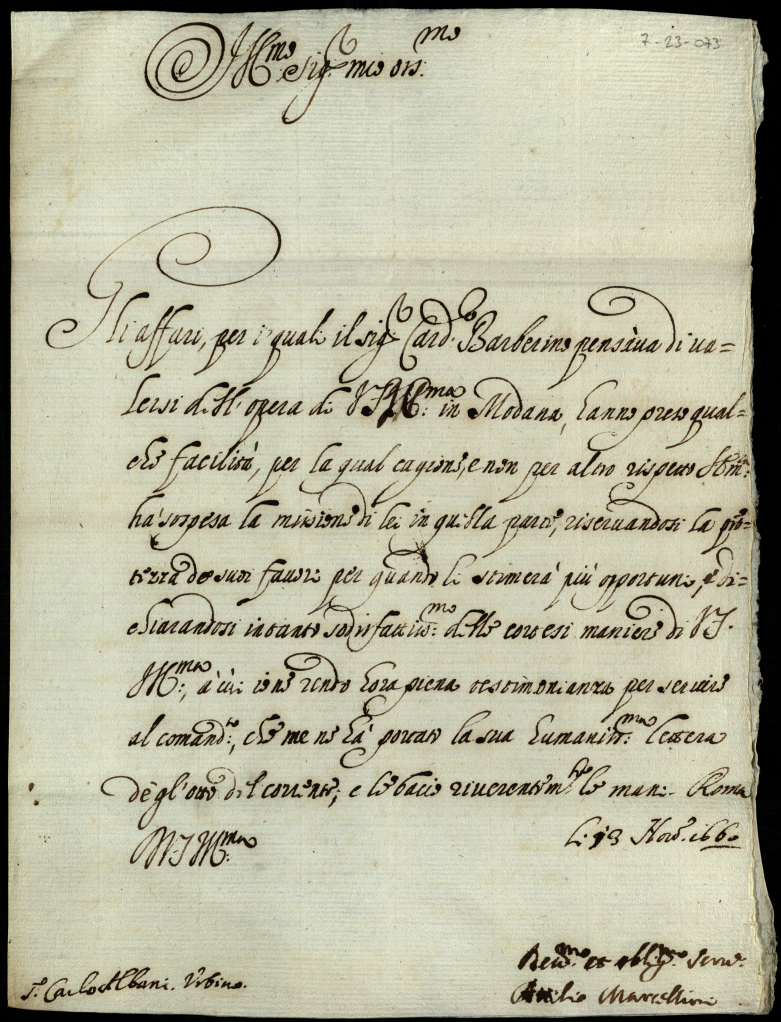 7-23-073
Ill.mo Sig.r mio oss.mo
Gli affari, per i quali il sig.r Card.l Barberino pensaua di ua=
lersi dell'opera di V.S. Ill.ma in Modana, hanno preso qual=
che facilità, per la qual cagione, e non per altro rispetto S. Em.za
hà sospesa la missione di lei in quella parte, riseruandosi la pro=
 de suoi fauori per quando li stimerà più opportuni, e di=
chiarandosi intanto sodisfattiss.mo delle cortesi maniere di V.S.
Ill.ma, à cui io ne rendo hora piena testimonianza per seruire
al comand.to, che me ne hà portato la sua humaniss.ma lettera
degl'otto del corrente; e le bacio riuerentem.te le mani. Roma
li 13 Nou.e 1660
V.S. Ill.ma
Deu.mo et obblig.mo Seru.e
Attilio Marcellini
S.r Carlo Albani. Vrbino.